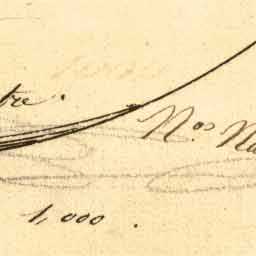 tre.
Nos. Na
1,000.